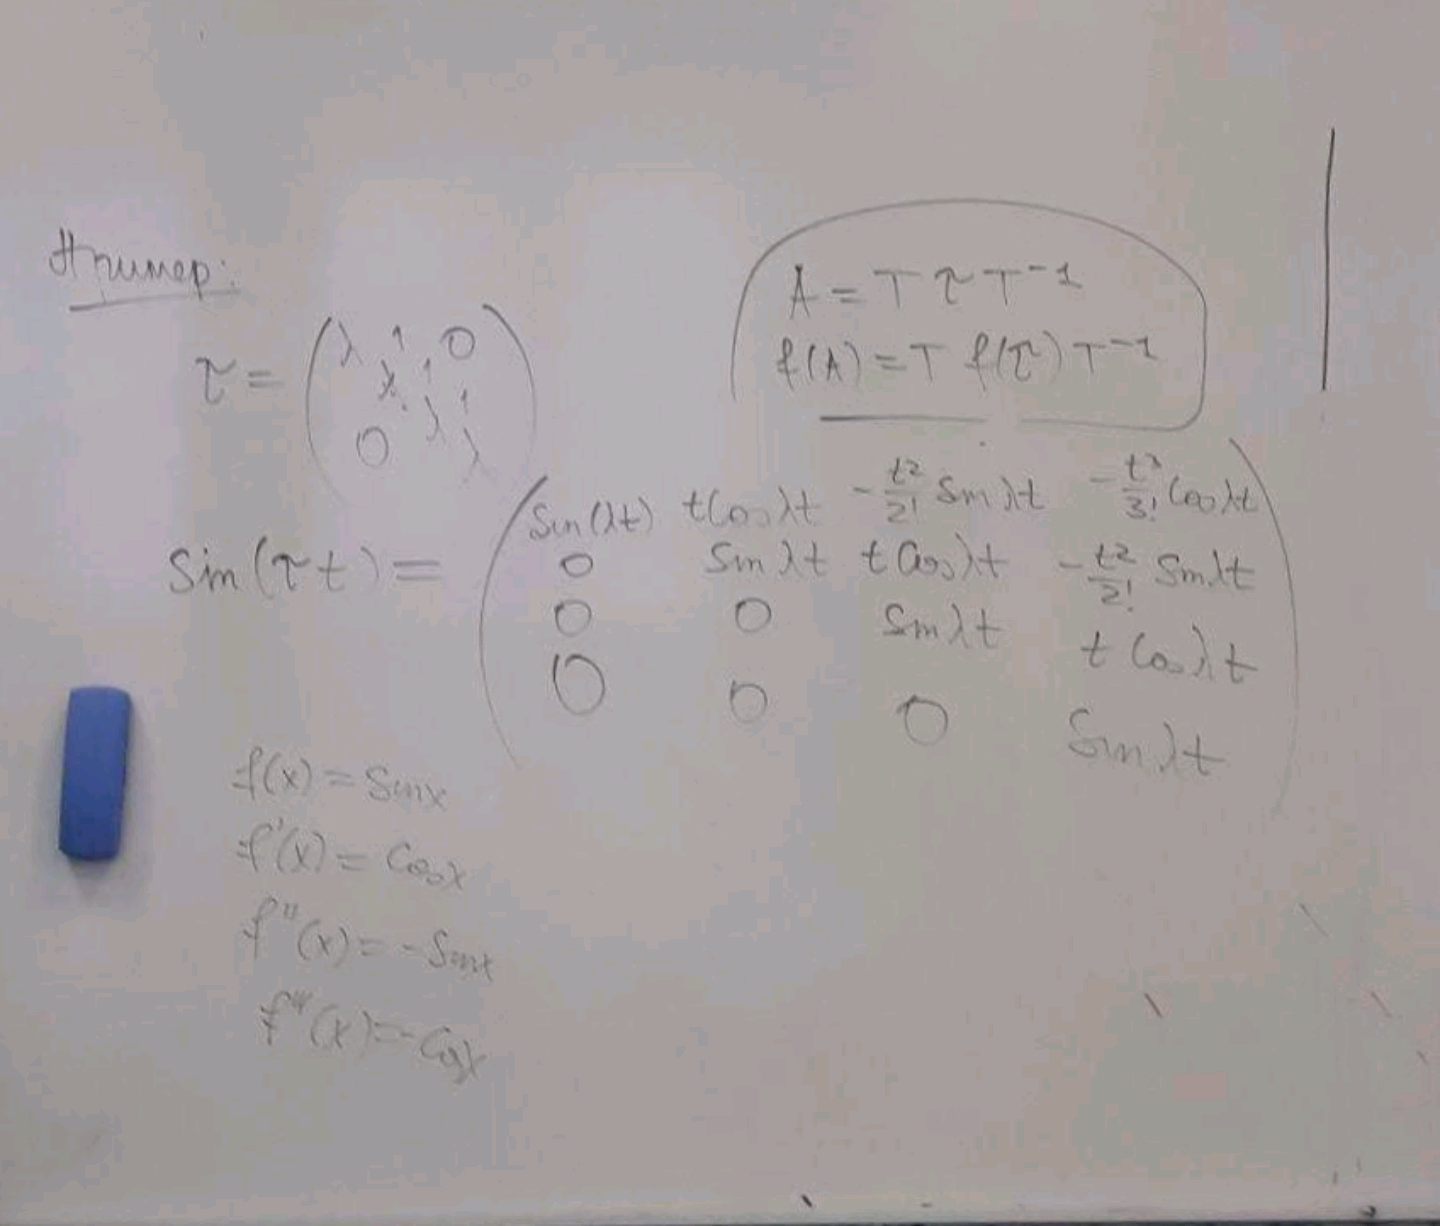 Пример:
A = T τ T⁻¹
f(A) = T f(τ) T⁻¹
τ = ( λ 1 0
λ 1
λ 1
0 λ )
Sin(λt) tCosλt -t²/2! Sinλt -t³/3! Cosλt
Sin(τt) = ( 0 Sinλt tCosλt -t²/2! Sinλt
0 0 Sinλt tCosλt
0 0 0 Sinλt )
f(x) = Sinx
f'(x) = Cosx
f''(x) = -Sinx
f'''(x) = -Cosx